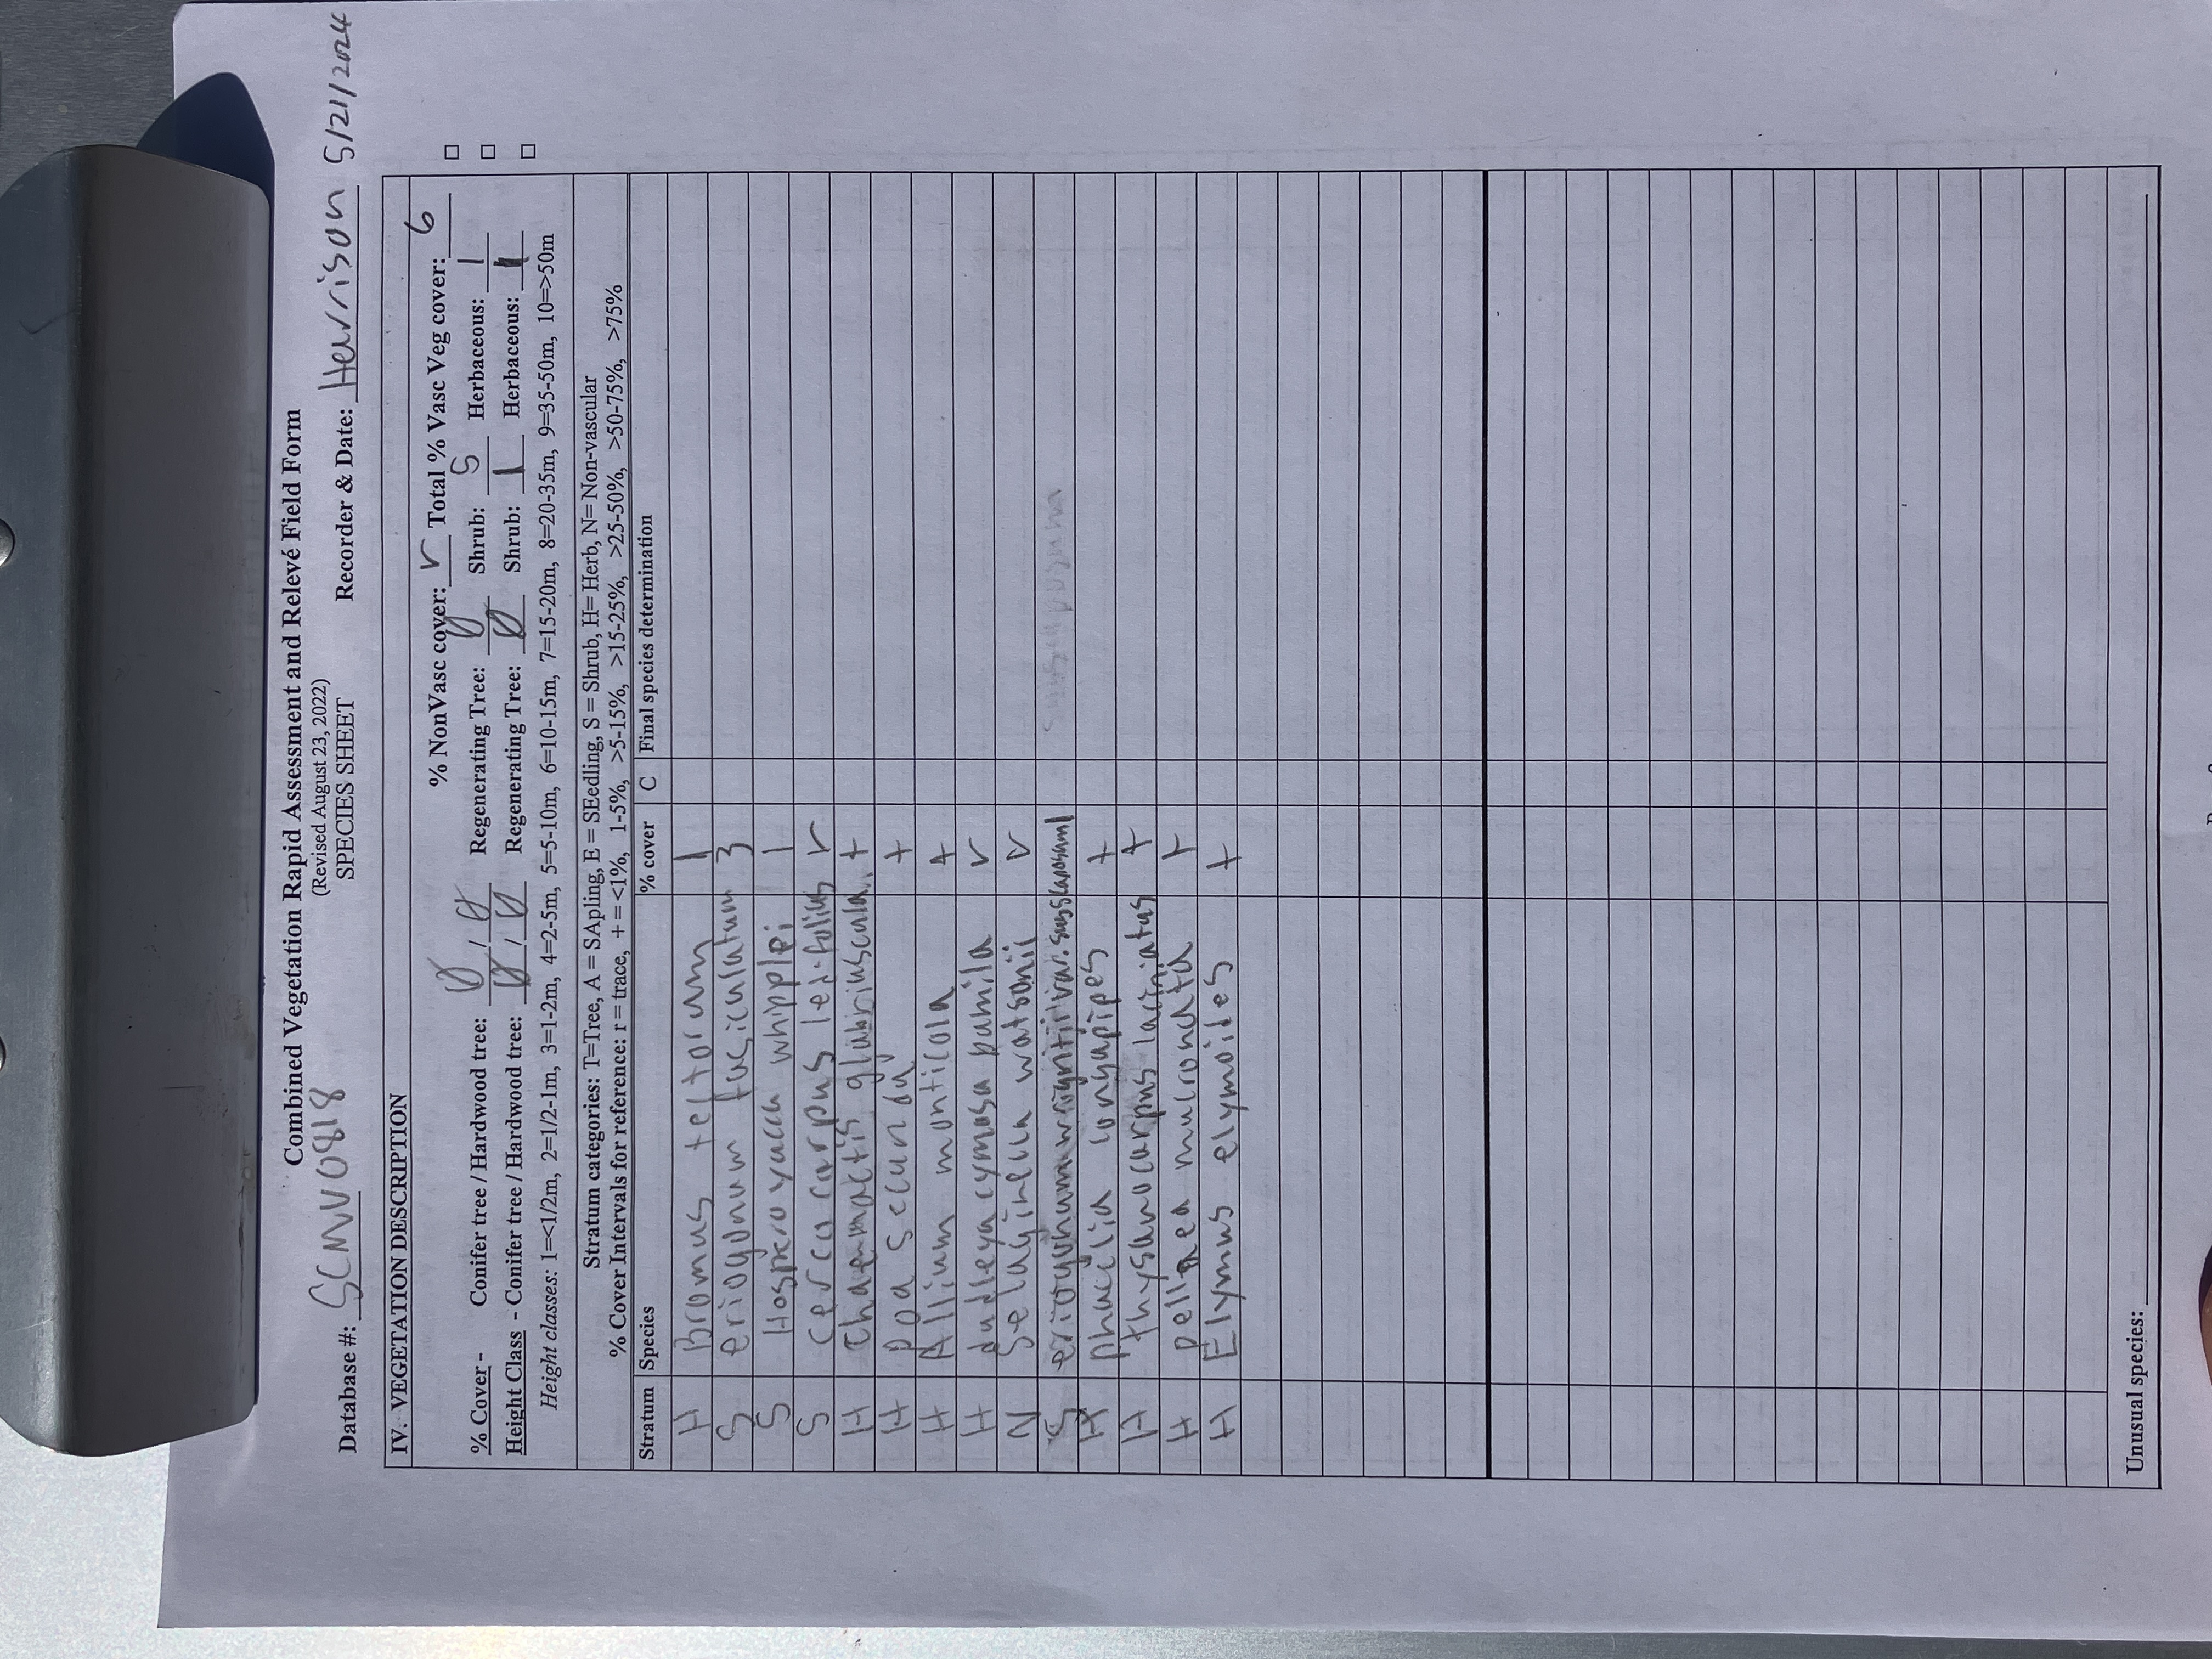 Combined Vegetation Rapid Assessment and Relevé Field Form
(Revised August 23, 2022)
SPECIES SHEET
Database #: SCMV0818 Recorder & Date: Harrison 5/21/2024
IV. VEGETATION DESCRIPTION
% NonVasc cover: r Total % Vasc Veg cover: 6
% Cover - Conifer tree / Hardwood tree: Ø / Ø Regenerating Tree: Ø Shrub: 5 Herbaceous: 1
Height Class - Conifer tree / Hardwood tree: Ø / Ø Regenerating Tree: Ø Shrub: 1 Herbaceous: 1
Height classes: 1=<1/2m, 2=1/2-1m, 3=1-2m, 4=2-5m, 5=5-10m, 6=10-15m, 7=15-20m, 8=20-35m, 9=35-50m, 10=>50m
Stratum categories: T=Tree, A = SApling, E = SEedling, S = Shrub, H= Herb, N= Non-vascular
% Cover Intervals for reference: r = trace, + = <1%, 1-5%, >5-15%, >15-25%, >25-50%, >50-75%, >75%
Stratum Species % cover C Final species determination
H Bromus tectorum 1
S eriogonum fasciculatum 3
S Hesperoyucca whipplei 1
S cercocarpus ledifolius r
H Chaenactis glabriuscula +
H poa secunda +
H Allium monticola +
H dudleya cymosa pumila r
N Selaginella watsonii r
S eriogonum wrightii var. subscaposum 1
H phacelia longapipes +
H thysanocarpus laciniatus +
H pellaea mucronata +
H Elymus elymoides +
Unusual species: